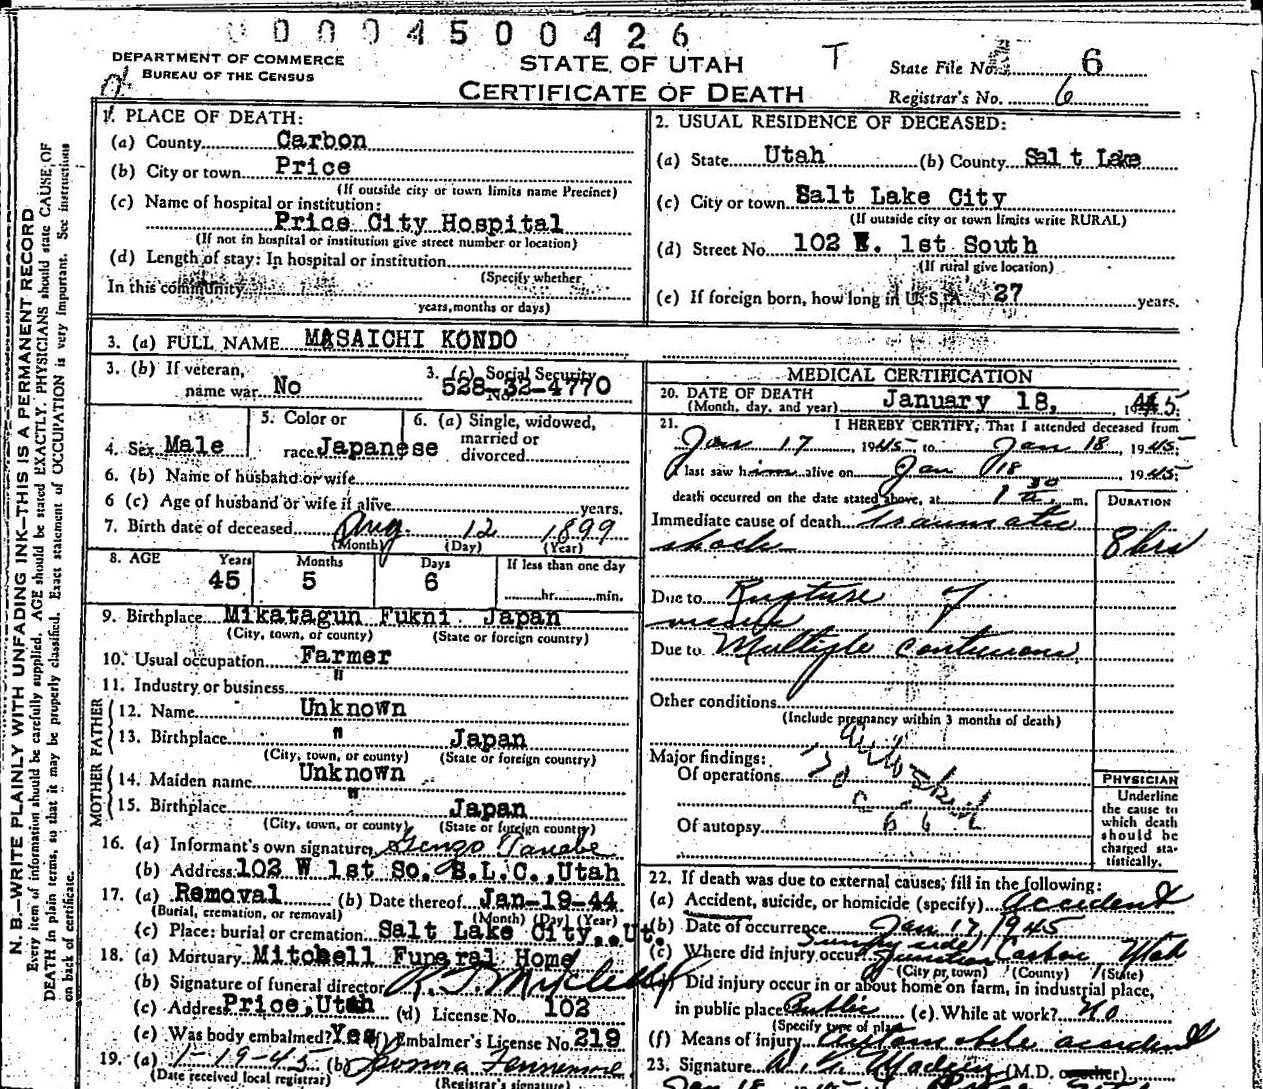 0004500426
DEPARTMENT OF COMMERCE
BUREAU OF THE CENSUS
STATE OF UTAH
CERTIFICATE OF DEATH
T
State File No. 6
Registrar's No. 6
N. B.—WRITE PLAINLY WITH UNFADING INK—THIS IS A PERMANENT RECORD
Every item of information should be carefully supplied. AGE should be stated EXACTLY. PHYSICIANS should state CAUSE OF
DEATH in plain terms, so that it may be properly classified. Exact statement of OCCUPATION is very important. See instructions
on back of certificate.
1. PLACE OF DEATH:
(a) County Carbon
(b) City or town Price
(If outside city or town limits name Precinct)
(c) Name of hospital or institution:
Price City Hospital
(If not in hospital or institution give street number or location)
(d) Length of stay: In hospital or institution
(Specify whether
In this community
years, months or days)
2. USUAL RESIDENCE OF DECEASED:
(a) State Utah (b) County Salt Lake
(c) City or town Salt Lake City
(If outside city or town limits write RURAL)
(d) Street No. 102 W. 1st South
(If rural give location)
(e) If foreign born, how long in U. S. A. 27 years.
3. (a) FULL NAME MASAICHI KONDO
3. (b) If veteran,
name war No
3. (c) Social Security
No. 528-32-4770
4. Sex Male
5. Color or
race Japanese
6. (a) Single, widowed,
married or
divorced
6. (b) Name of husband or wife
6 (c) Age of husband or wife if alive years.
7. Birth date of deceased Aug. 12 1899
(Month) (Day) (Year)
8. AGE Years Months Days If less than one day
45 5 6 hr. min.
9. Birthplace Mikatagun Fukni Japan
(City, town, or county) (State or foreign country)
10. Usual occupation Farmer
11. Industry or business "
FATHER
12. Name Unknown
13. Birthplace " Japan
(City, town, or county) (State or foreign country)
MOTHER
14. Maiden name Unknown
15. Birthplace " Japan
(City, town, or county) (State or foreign country)
16. (a) Informant's own signature Gengo Tanabe
(b) Address 102 W 1st So. S.L.C., Utah
17. (a) Removal (b) Date thereof Jan-19-44
(Burial, cremation, or removal) (Month) (Day) (Year)
(c) Place: burial or cremation Salt Lake City., Ut.
18. (a) Mortuary Mitchell Funeral Home
(b) Signature of funeral director
(c) Address Price, Utah (d) License No. 102
(e) Was body embalmed? Yes (f) Embalmer's License No. 219
19. (a) 1-19-45 (b)
(Date received local registrar) (Registrar's signature)
MEDICAL CERTIFICATION
20. DATE OF DEATH
(Month, day, and year) January 18, 1945
21. I HEREBY CERTIFY, That I attended deceased from
Jan 17, 1945 to Jan 18 1945
I last saw him alive on Jan 18 1945
death occurred on the date stated above, at 1 30 m.
DURATION
Immediate cause of death Traumatic
shock 8 hrs
Due to Rupture of
Due to Multiple contusions
Other conditions
(Include pregnancy within 3 months of death)
Major findings:
Of operations
Of autopsy
PHYSICIAN
Underline
the cause to
which death
should be
charged sta-
tistically.
22. If death was due to external causes, fill in the following:
(a) Accident, suicide, or homicide (specify) Accident
(b) Date of occurrence Jan 17, 1945
(c) Where did injury occur Sunnyside Junction Carbon Utah
(City or town) (County) (State)
Did injury occur in or about home on farm, in industrial place,
in public place Public (e) While at work? No
(Specify type of place)
(f) Means of injury Automobile accident
23. Signature (M.D. or other)
Jan 18